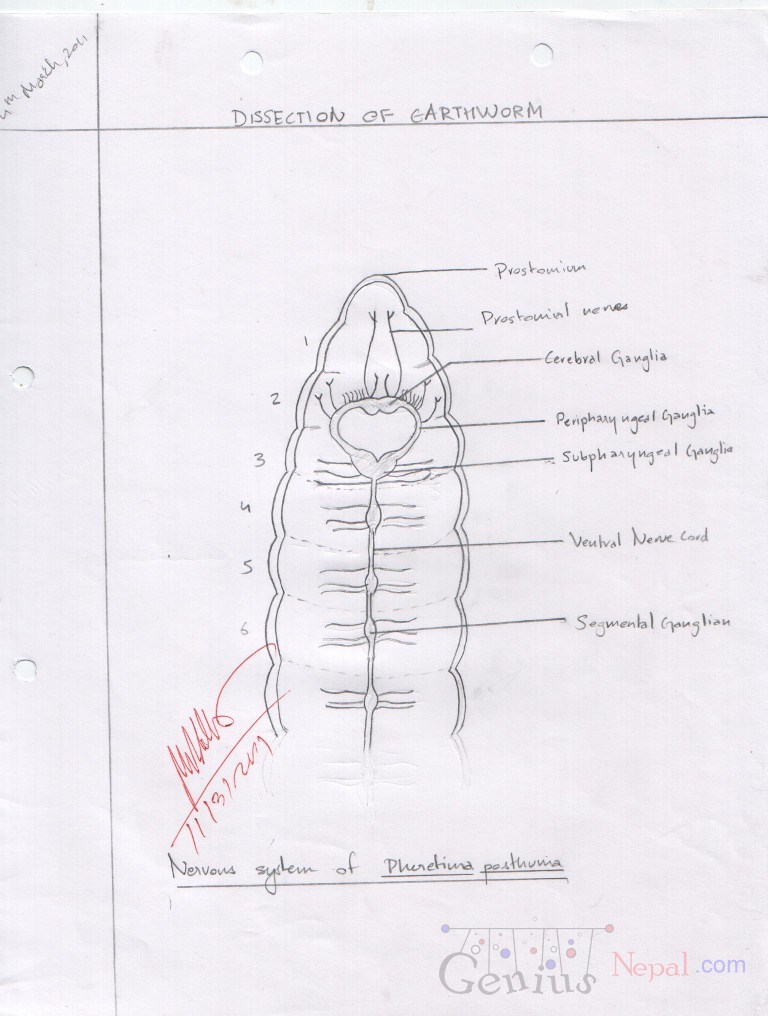 March, 2011
DISSECTION OF EARTHWORM
Prostomium
Prostomial nerves
1
Cerebral Ganglia
2
Peripharyngeal Ganglia
3
Subpharyngeal Ganglia
4
Ventral Nerve Cord
5
Segmental Ganglian
6
Nervous system of Pheretima posthuma
Genius Nepal.com